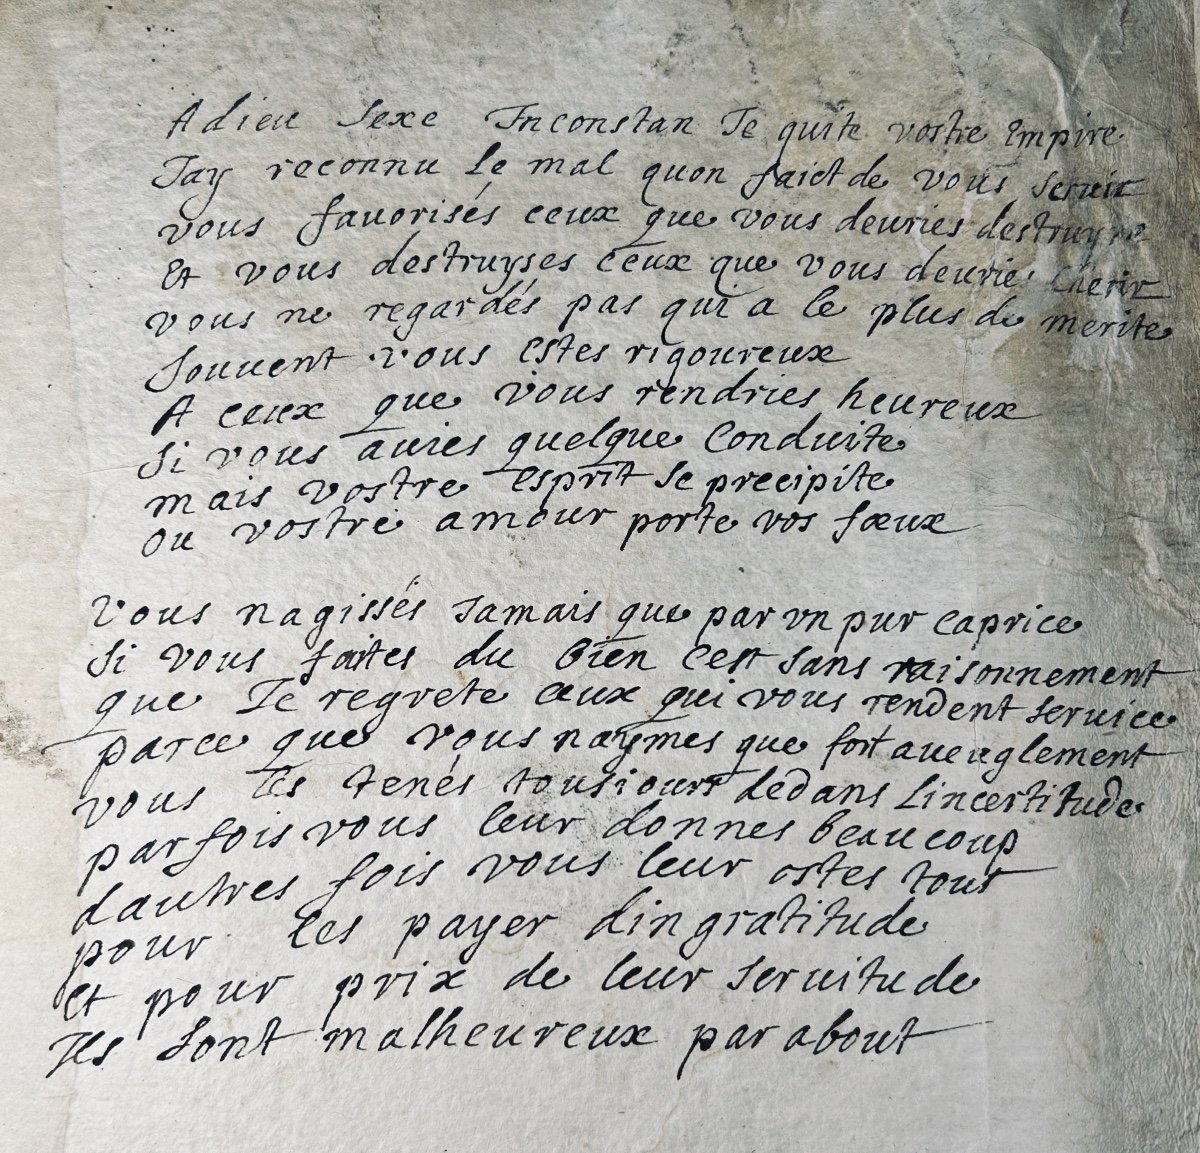 Adieu sexe Inconstan Je quite vostre Empire
Jay reconnu le mal quon faict de vous seruir
vous fauorisés ceux que vous deuries destruyre
Et vous destruyses ceux que vous deuries Cherir
vous ne regardés pas qui a le plus de merite
souuent vous estes rigoureux
A ceux que vous rendries heureux
si vous auies quelque Conduite
mais vostre esprit se precipite
ou vostre amour porte vos fœux
vous nagissés Jamais que par vn pur caprice
si vous faites du bien cest sans raisonnement
que Je regrete ceux qui vous rendent seruice
parce que vous naymes que fort aueuglement
vous les tenés tousiours dedans Lincertitude
par fois vous leur donnes beaucoup
dautres fois vous leur ostes tout
pour les payer dingratitude
et pour prix de leur seruitude
Ils sont malheureux par about